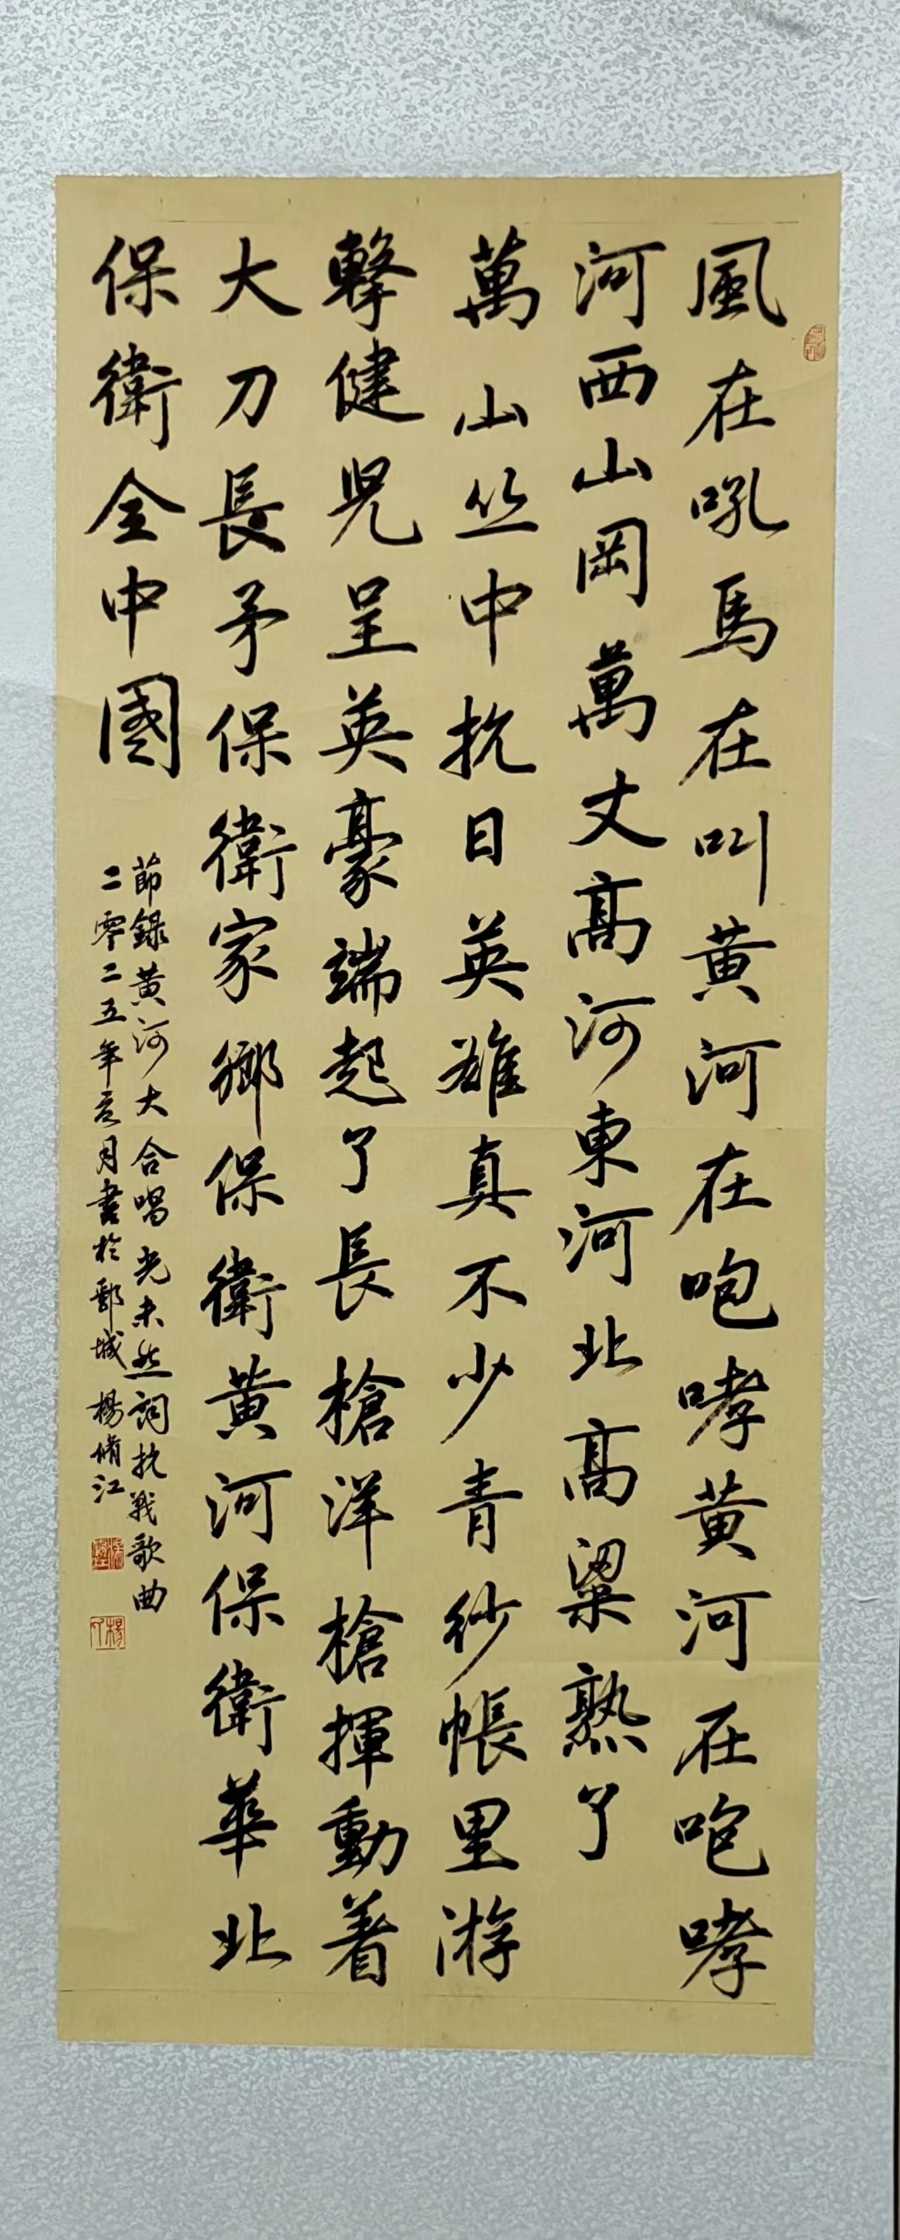 風在吼馬在叫黄河在咆哮黄河在咆哮
河西山岡萬丈高河東河北高粱熟了
萬山丛中抗日英雄真不少青紗帳里游
擊健児呈英豪端起了長槍洋槍揮動着
大刀長矛保衛家鄉保衛黄河保衛華北
保衛全中國
節録黄河大合唱光未然詞抗戰歌曲
二零二五年八月書於鄆城楊脩江